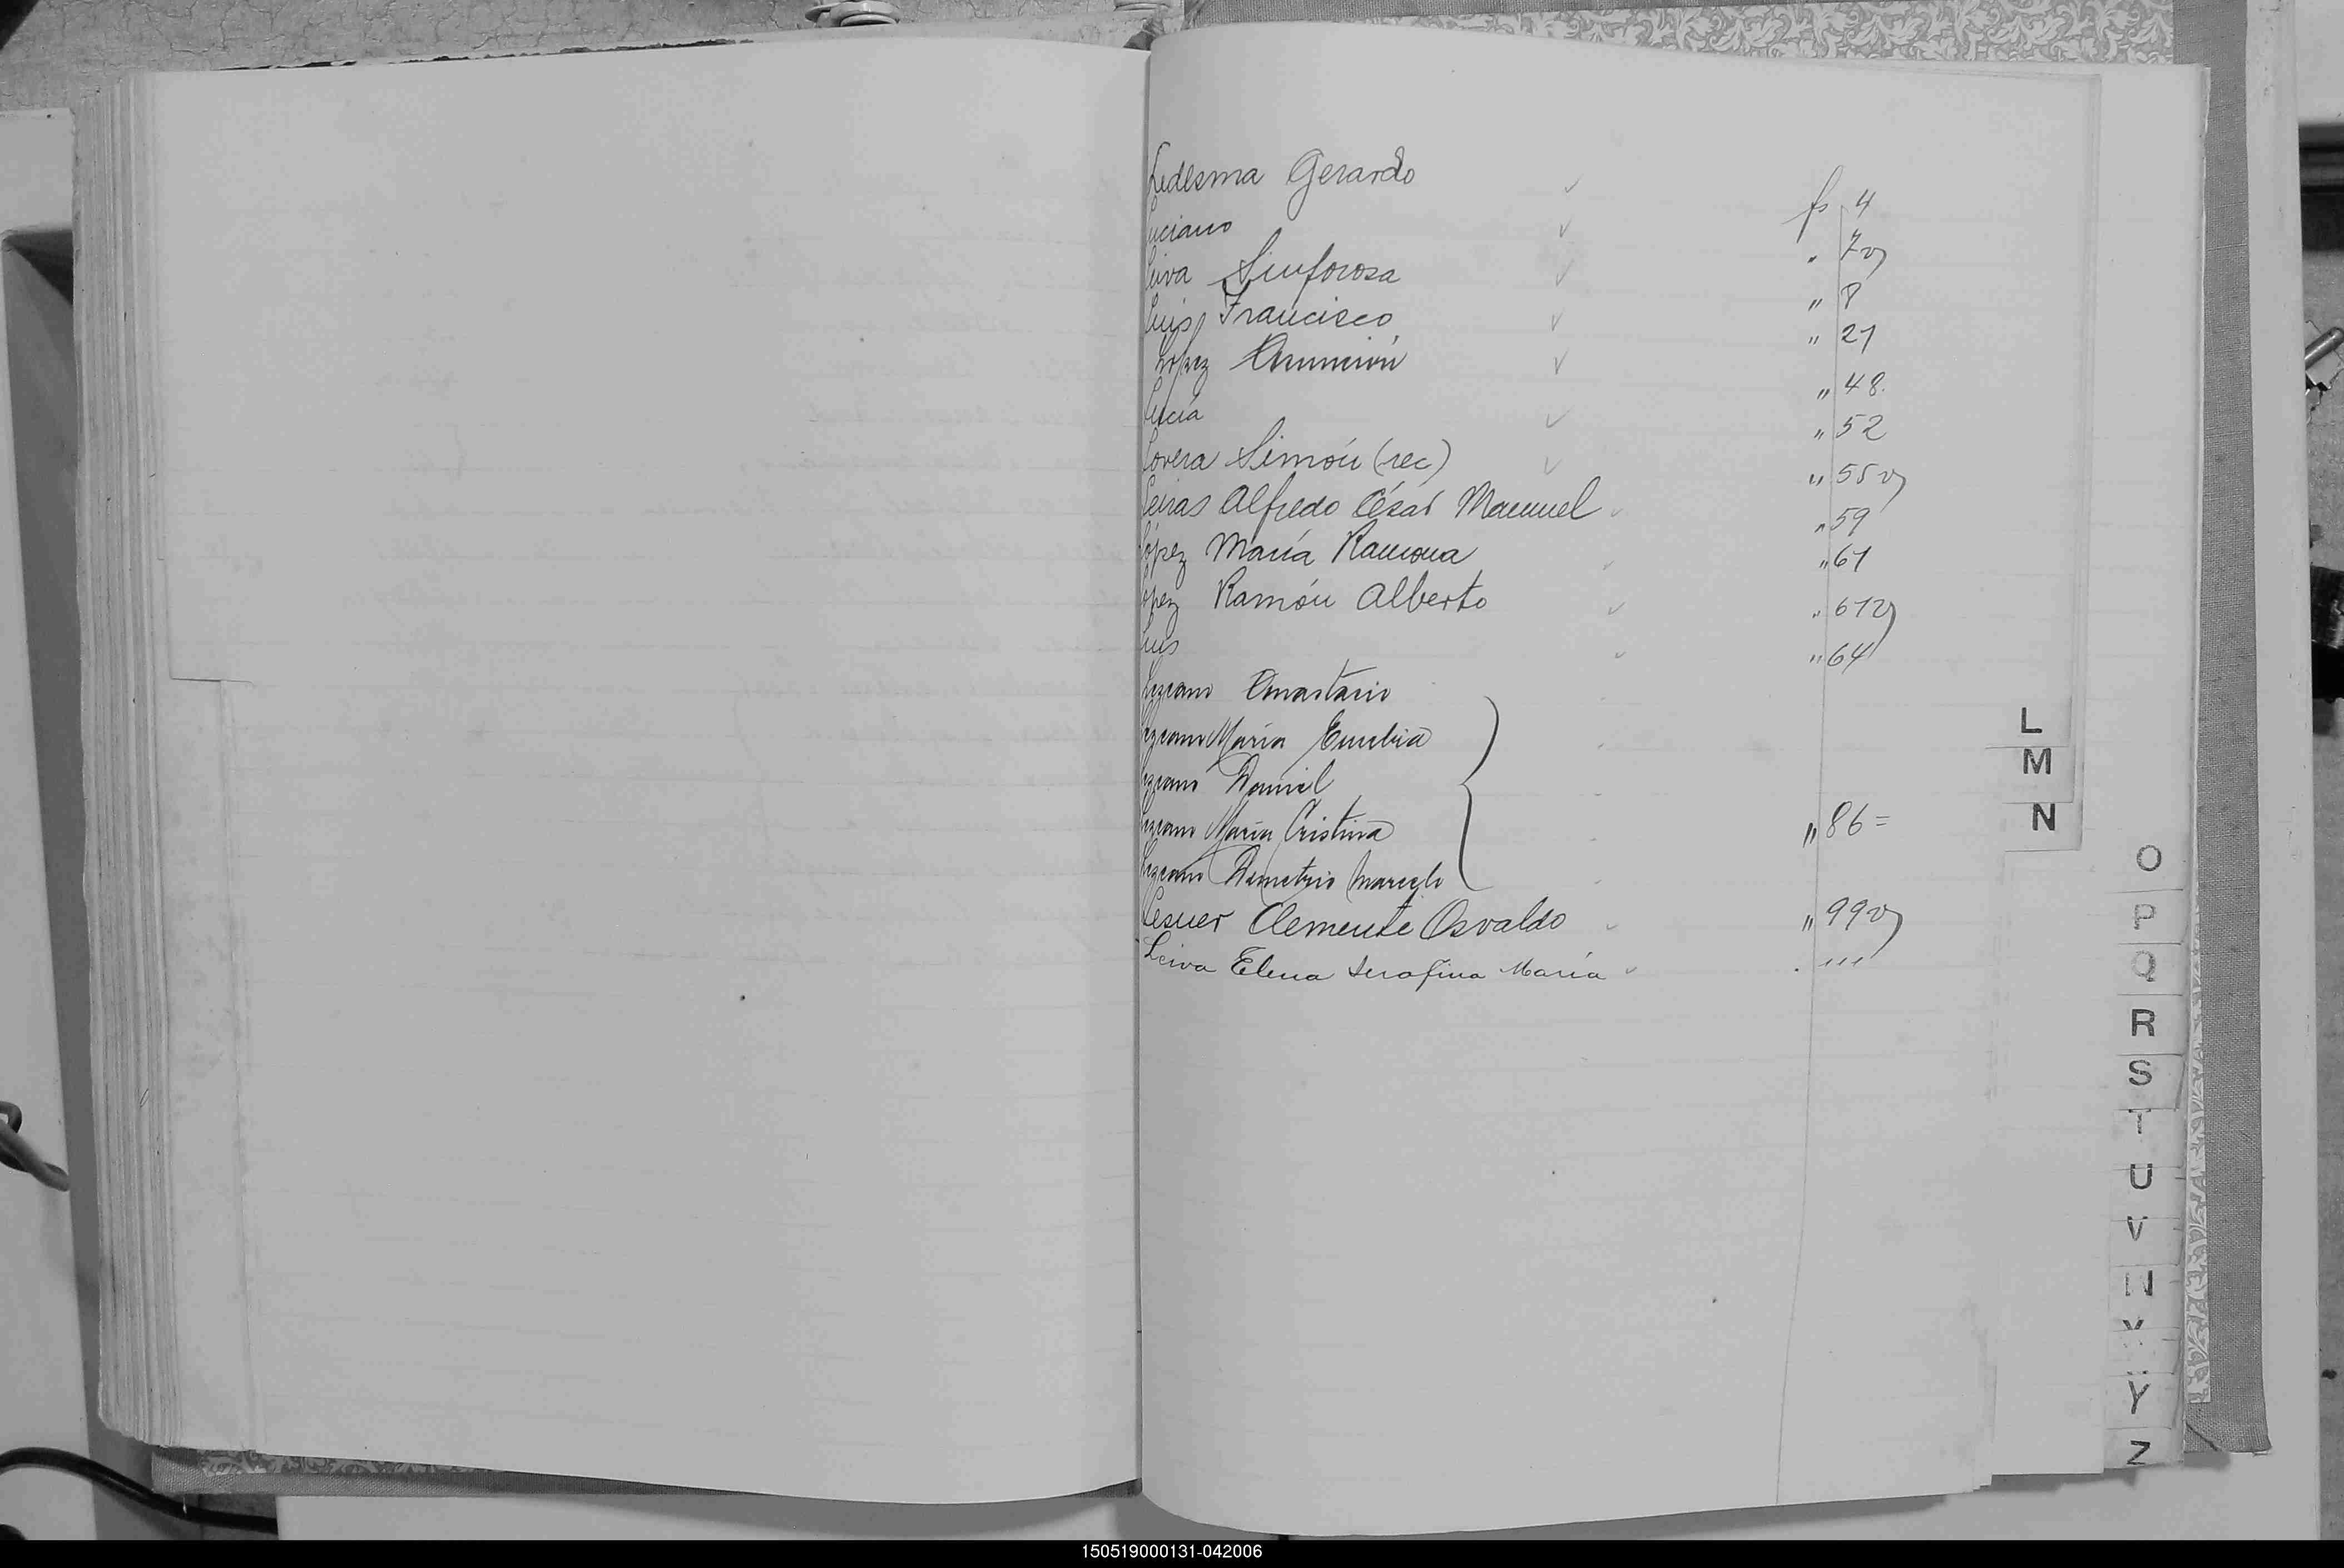 Ledesma Gerardo fs 4
Luciano . 7v
Leiva Sinforosa " 8
Luis Francisco " 21
López Asunción " 48.
Lucía " 52
Lovera Simón (rec) " 55v
Leiras Alfredo César Manuel " 59
López María Ramona " 61
López Ramón Alberto " 61v
Luis " 64
Lezcano Anastacio
Lezcano María Eusebia
Lezcano Daniel
Lezcano María Cristina " 86=
Lezcano Demetrio Marcelo
Lesuer Clemente Osvaldo " 99v
Leiva Elena Serafina María
L
M
N
O
P
Q
R
S
T
U
V
Y
Z
150519000131-042006